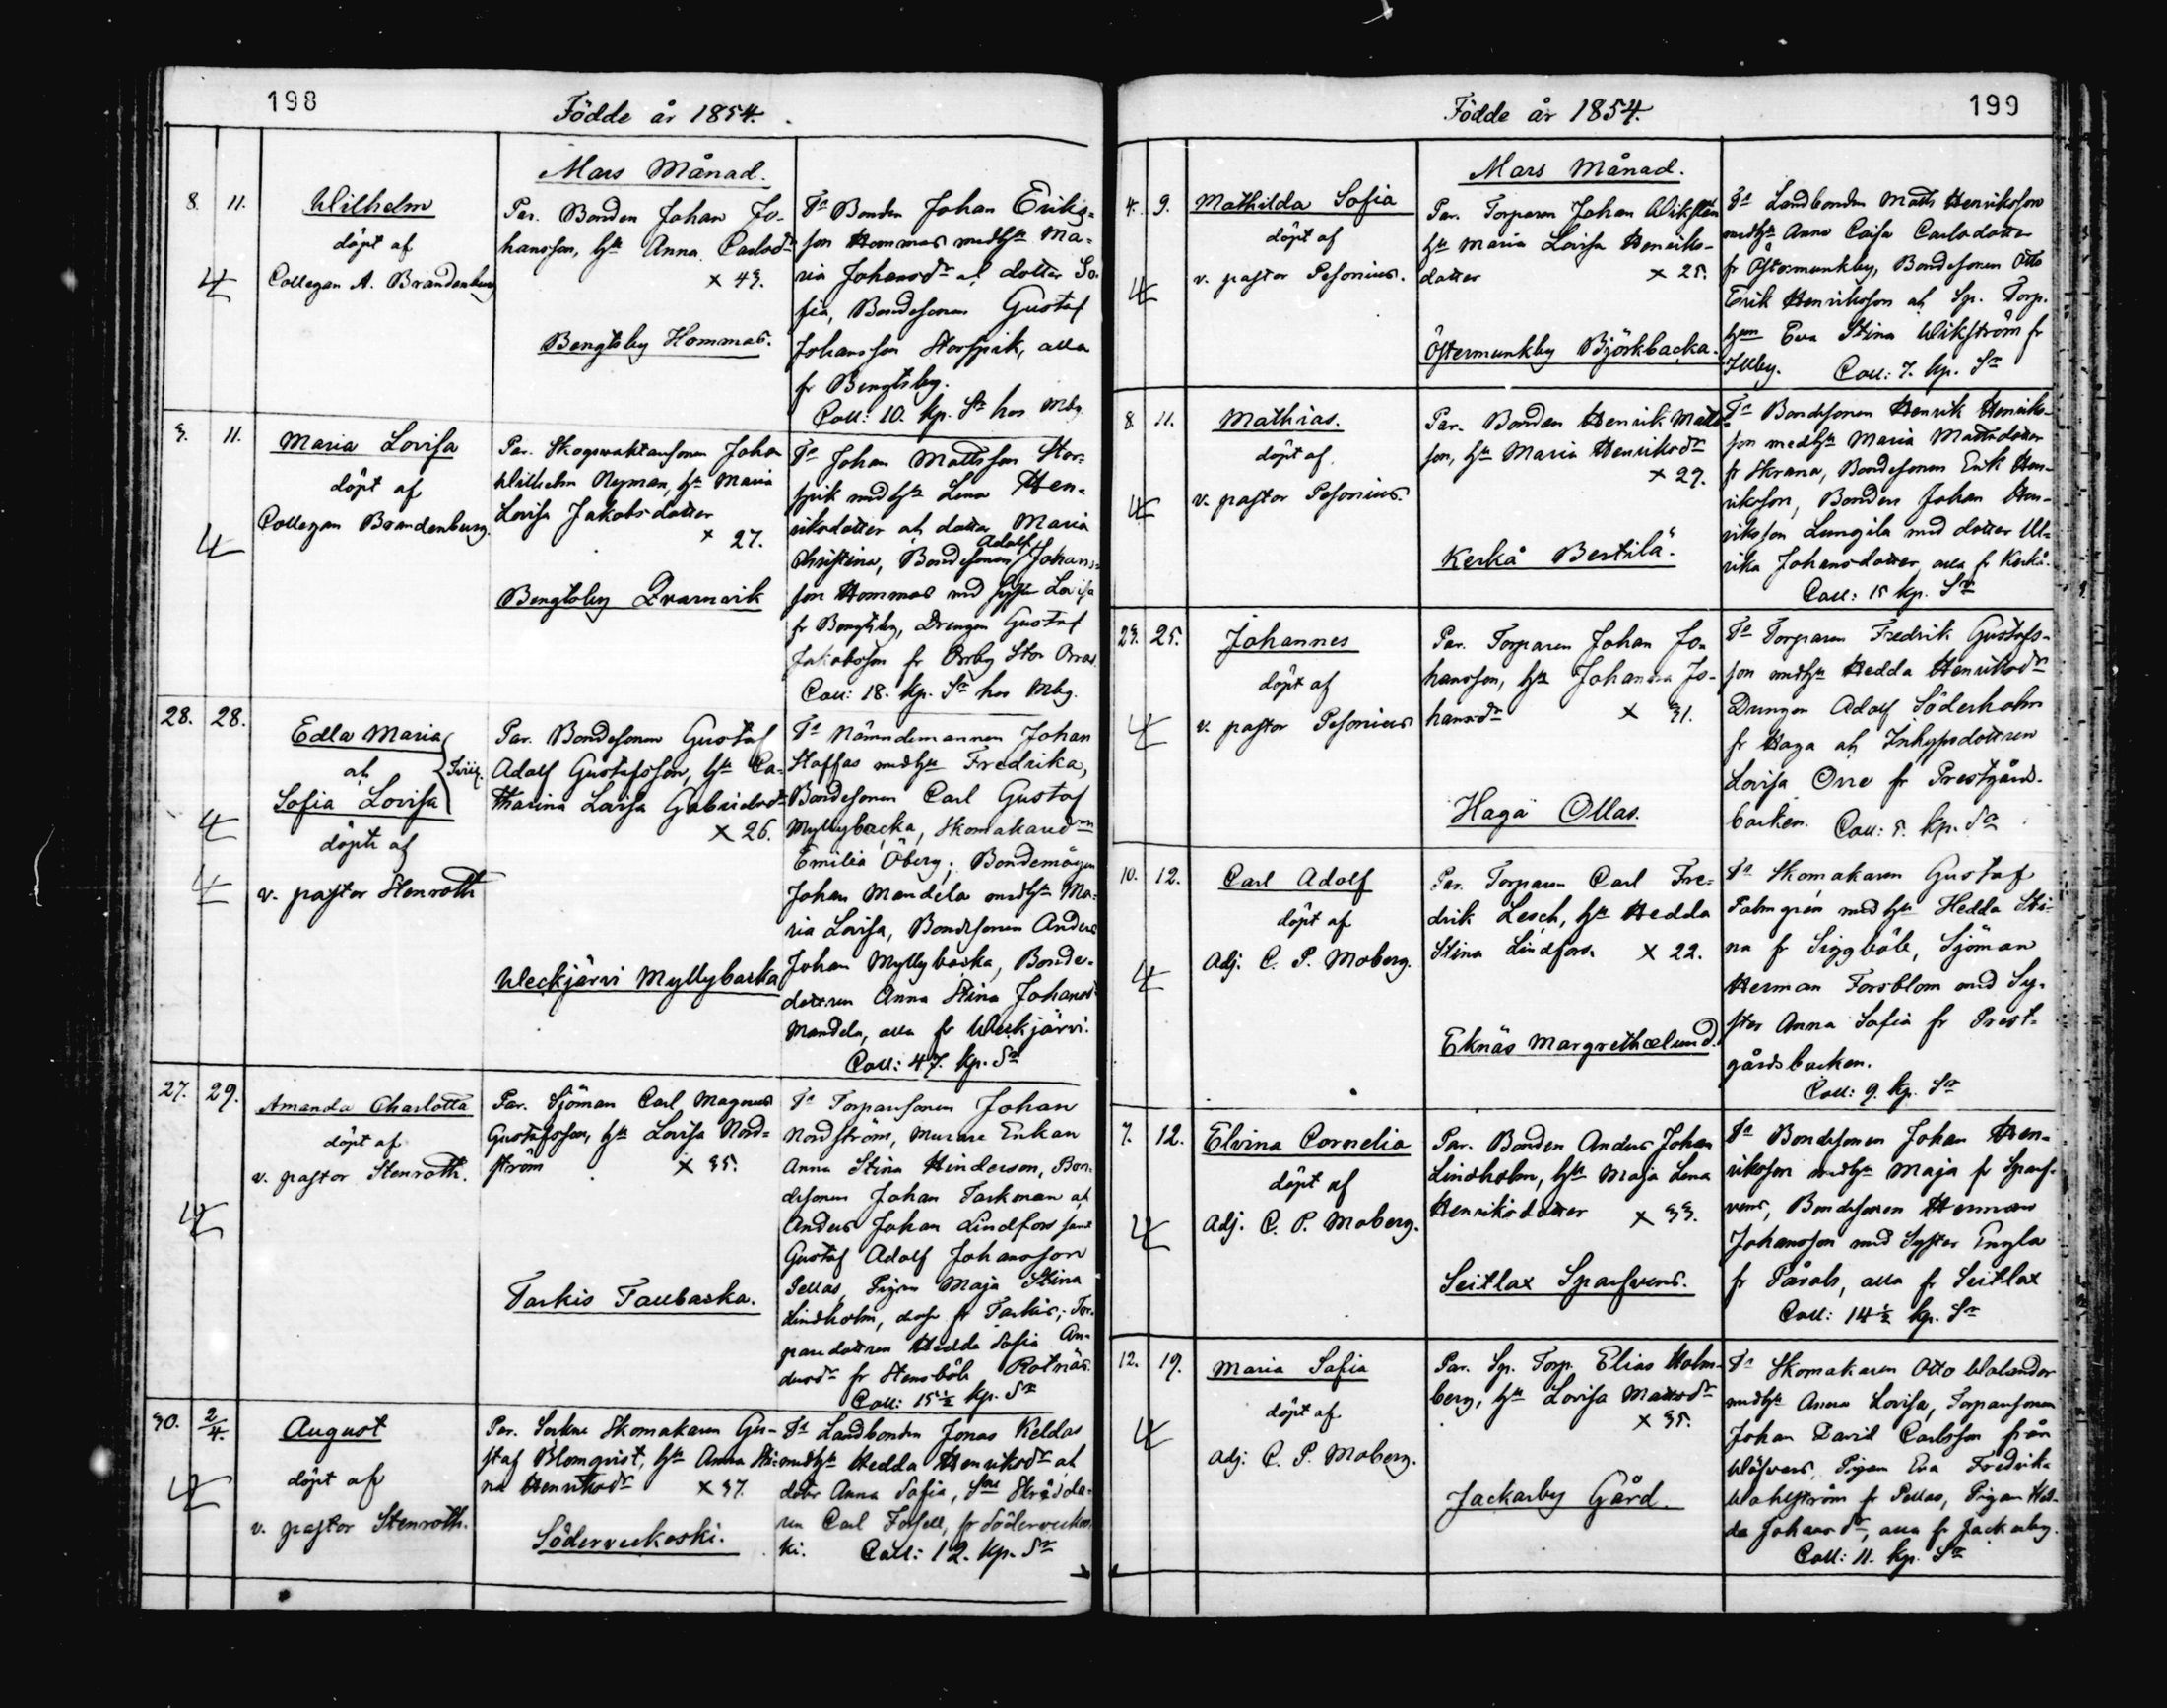 198
Födde år 1854.
Mars Månad.
8. 11.
Wilhelm
döpt af
Collegan A. Brandenburg
Par. Bonden Johan Jo-
hansson, hu Anna Carlsdr
× 43.
Bengtsby Hommas.
Fr Bonden Johan Eriks-
son Hommas med hu Ma-
ria Johansdr och dotter So-
fia, Bondesonen Gustaf
Johansson Storspik, alla
fr Bengtsby.
Coll: 10. kp. Sr hos Mbg.
3. 11.
Maria Lovisa
döpt af
Collegan Brandenburg.
Par. Skogswaktaresonen Johan
Wilhelm Nyman, hu Maria
Lovisa Jakobsdotter
× 27.
Bengtsby Qvarnvik
Fr Johan Mattsson Stor-
spik med hu Lena Hen-
riksdotter och dotter Maria
Christina, Bondesonen Adolf Johans-
son Hommas med syster Lovisa
fr Bengtsby, Drengen Gustaf
Jakobsson fr Orrby Stor Orras
Coll: 18. kp. Sr hos Mbg.
28. 28.
Edla Maria
och
Sofia Lovisa
döpte af
v. pastor Stenroth
Par. Bondesonen Gustaf
Adolf Gustafsson, hu Ca-
tharina Lovisa Gabrielsdr
× 26.
Weckjärvi Myllybacka
Fr Nämndemannen Johan
Staffas med hu Fredrika,
Bondesonen Carl Gustaf
Myllybacka,
Emilia Öberg; Bondemågen
Johan Mandela med hu Ma-
ria Lovisa, Bondesonen Anders
Johan Myllybacka, Bonde-
dottren Anna Stina Johansdr
Mandela, alla fr Weckjärvi.
Coll: 47. kp. Sr
27. 29.
Amanda Charlotta
döpt af
v. pastor Stenroth.
Par. Sjöman Carl Magnus
Gustafsson, hu Lovisa Nord-
ström × 35.
Tarkis Taubacka.
Fr Torparesonen Johan
Nordström, Murare Enkan
Anna Stina Hinderson, Bon-
desonen Johan Tarkman och
Anders Johan Lindfors samt
Gustaf Adolf Johansson
Pellas, Pigan Maja Stina
Lindholm, desse fr Tarkis; Tor-
paredottren Hedda Sofia An-
dersdr fr Stensböle Rotnäs.
Coll: 15½ kp. Sr
30. 2/4.
August
döpt af
v. pastor Stenroth.
Par. Sockne Skomakaren Gu-
staf Blomqvist, hu Anna Sti-
na Henriksdr × 37.
Söderveckoski.
Fr Landbonden Jonas Keldas
med hu Hedda Henriksdr och
dotr Anna Sofia, Skrädda-
ren Carl Forsell, fr Söderveckos-
ki. Coll: 12. kp. Sr
Födde år 1854.
199
Mars Månad.
4. 9.
Mathilda Sofia
döpt af
v. pastor Pesonius.
Par. Torparen Johan Wiksten
hu Maria Lovisa Henriks-
dotter × 25.
Östermunkby Björkbacka.
Fr Landbonden Matts Henriksson
med hu Anna Caisa Carlsdotter
fr Östermunkby, Bondesonen Otto
Erik Henriksson och Sp. Torp.
hun Eva Stina Wikström fr
Illby. Coll: 7. kp. Sr
8. 11.
Mathias.
döpt af
v. pastor Pesonius.
Par. Bonden Henrik Matts-
son, hu Maria Henriksdr
× 29.
Kerkå Bertilä.
Fr Bondesonen Henrik Henriks-
son med hu Maria Mattsdotter
fr Skrana, Bondesonen Erik Hen-
riksson, Bonden Johan Hen-
riksson Lungila med dotter Ul-
rika Johansdotter, alla fr Kerkå.
Coll: 15 kp. Sr
23. 25.
Johannes
döpt af
v. pastor Pesonius
Par. Torparen Johan Jo-
hansson, hu Johanna Jo-
hansdr × 31.
Haga Ollas.
Fr Torparen Fredrik Gustafs-
son med hu Hedda Henriksdr
Drengen Adolf Söderholm
fr Haga och Inhysesdottren
Lovisa Orre fr Prestgårds-
backen. Coll: 5. kp. Sr
10. 12.
Carl Adolf
döpt af
Adj. C. P. Moberg.
Par. Torparen Carl Fre-
drik Lesch, hu Hedda
Stina Lindfors. × 22.
Eknäs Margrethælund.
Fr Skomakaren Gustaf
Palmgrén med hu Hedda Sti-
na fr Siggböle, Sjöman
Herman Forsblom med Sy-
ster Anna Sofia fr Prest-
gårdsbacken.
Coll: 9. kp. Sr
7. 12.
Elvina Cornelia
döpt af
Adj. C. P. Moberg.
Par. Bonden Anders Johan
Lindholm, hu Maja Lena
Henriksdotter × 33.
Seitlax Sparfvens.
Fr Bondesonen Johan Hen-
riksson med hu Maja fr Sparf-
vens, Bondesonen Herman
Johansson med Syster Engla
fr Påvals, alla fr Seitlax
Coll: 14½ kp. Sr
12. 19.
Maria Sofia
döpt af
Adj. C. P. Moberg.
Par. Sp. Torp. Elias Holm-
berg, hu Lovisa Mattsdr
× 35.
Jackarby Gård.
Fr Skomakaren Otto Walander
med hu Anna Lovisa, Torparesonen
Johan David Carlsson från
Pigan Eva Fredrika
Wahlström fr Pellas, Pigan Hed-
da Johansdr, alla fr Jackarby.
Coll: 11. kp. Sr